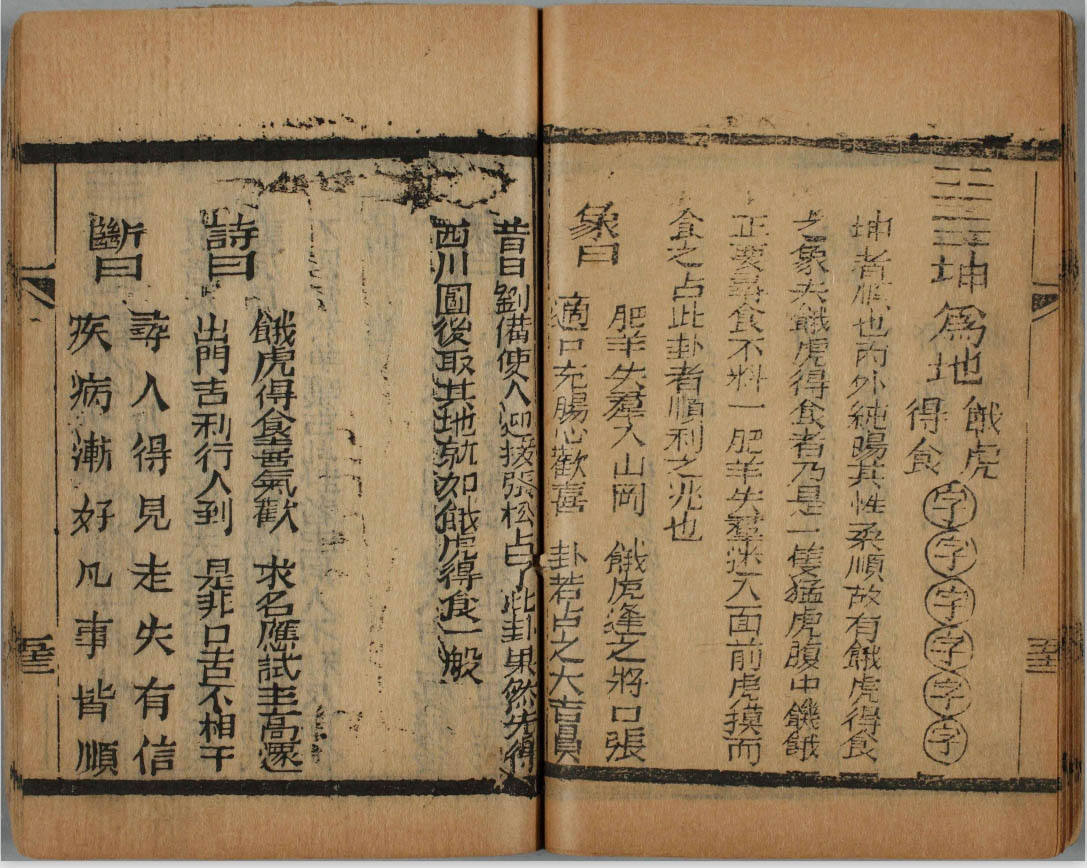 坤爲地
餓虎
得食
字字字字字字
坤者順也內外純陽其性柔順故有餓虎得食
之象夫餓虎得食者乃是一隻猛虎腹中饑餓
正要尋食不料一肥羊失羣迷入面前虎摸而
食之占此卦者順利之兆也
象曰
肥羊失羣入山岡 餓虎逢之將口張
適口充腸心歡喜 卦若占之大吉昌
昔日劉備使人迎接張松占了此卦果然先得
西川圖後取其地就如餓虎得食一般
詩曰
餓虎得食喜氣歡 求名應試主高遷
出門吉利行人到 是非口舌不相干
斷曰
尋人得見走失有信
疾病漸好凡事皆順